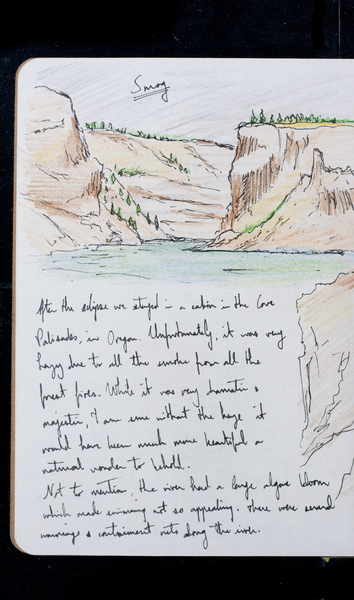 Smog
After the eclipse we stayed in a cabin in the Cove
Palisades, in Oregon. Unfortunately, it was very
hazy due to all the smoke from all the
forest fires. While it was very dramatic &
majestic, I am sure without the haze it
would have been much more beautiful a
natural wonder to behold.
Not to mention, the river had a large algae bloom
which made swimming not so appealing. there were several
warnings & containment nets along the river.